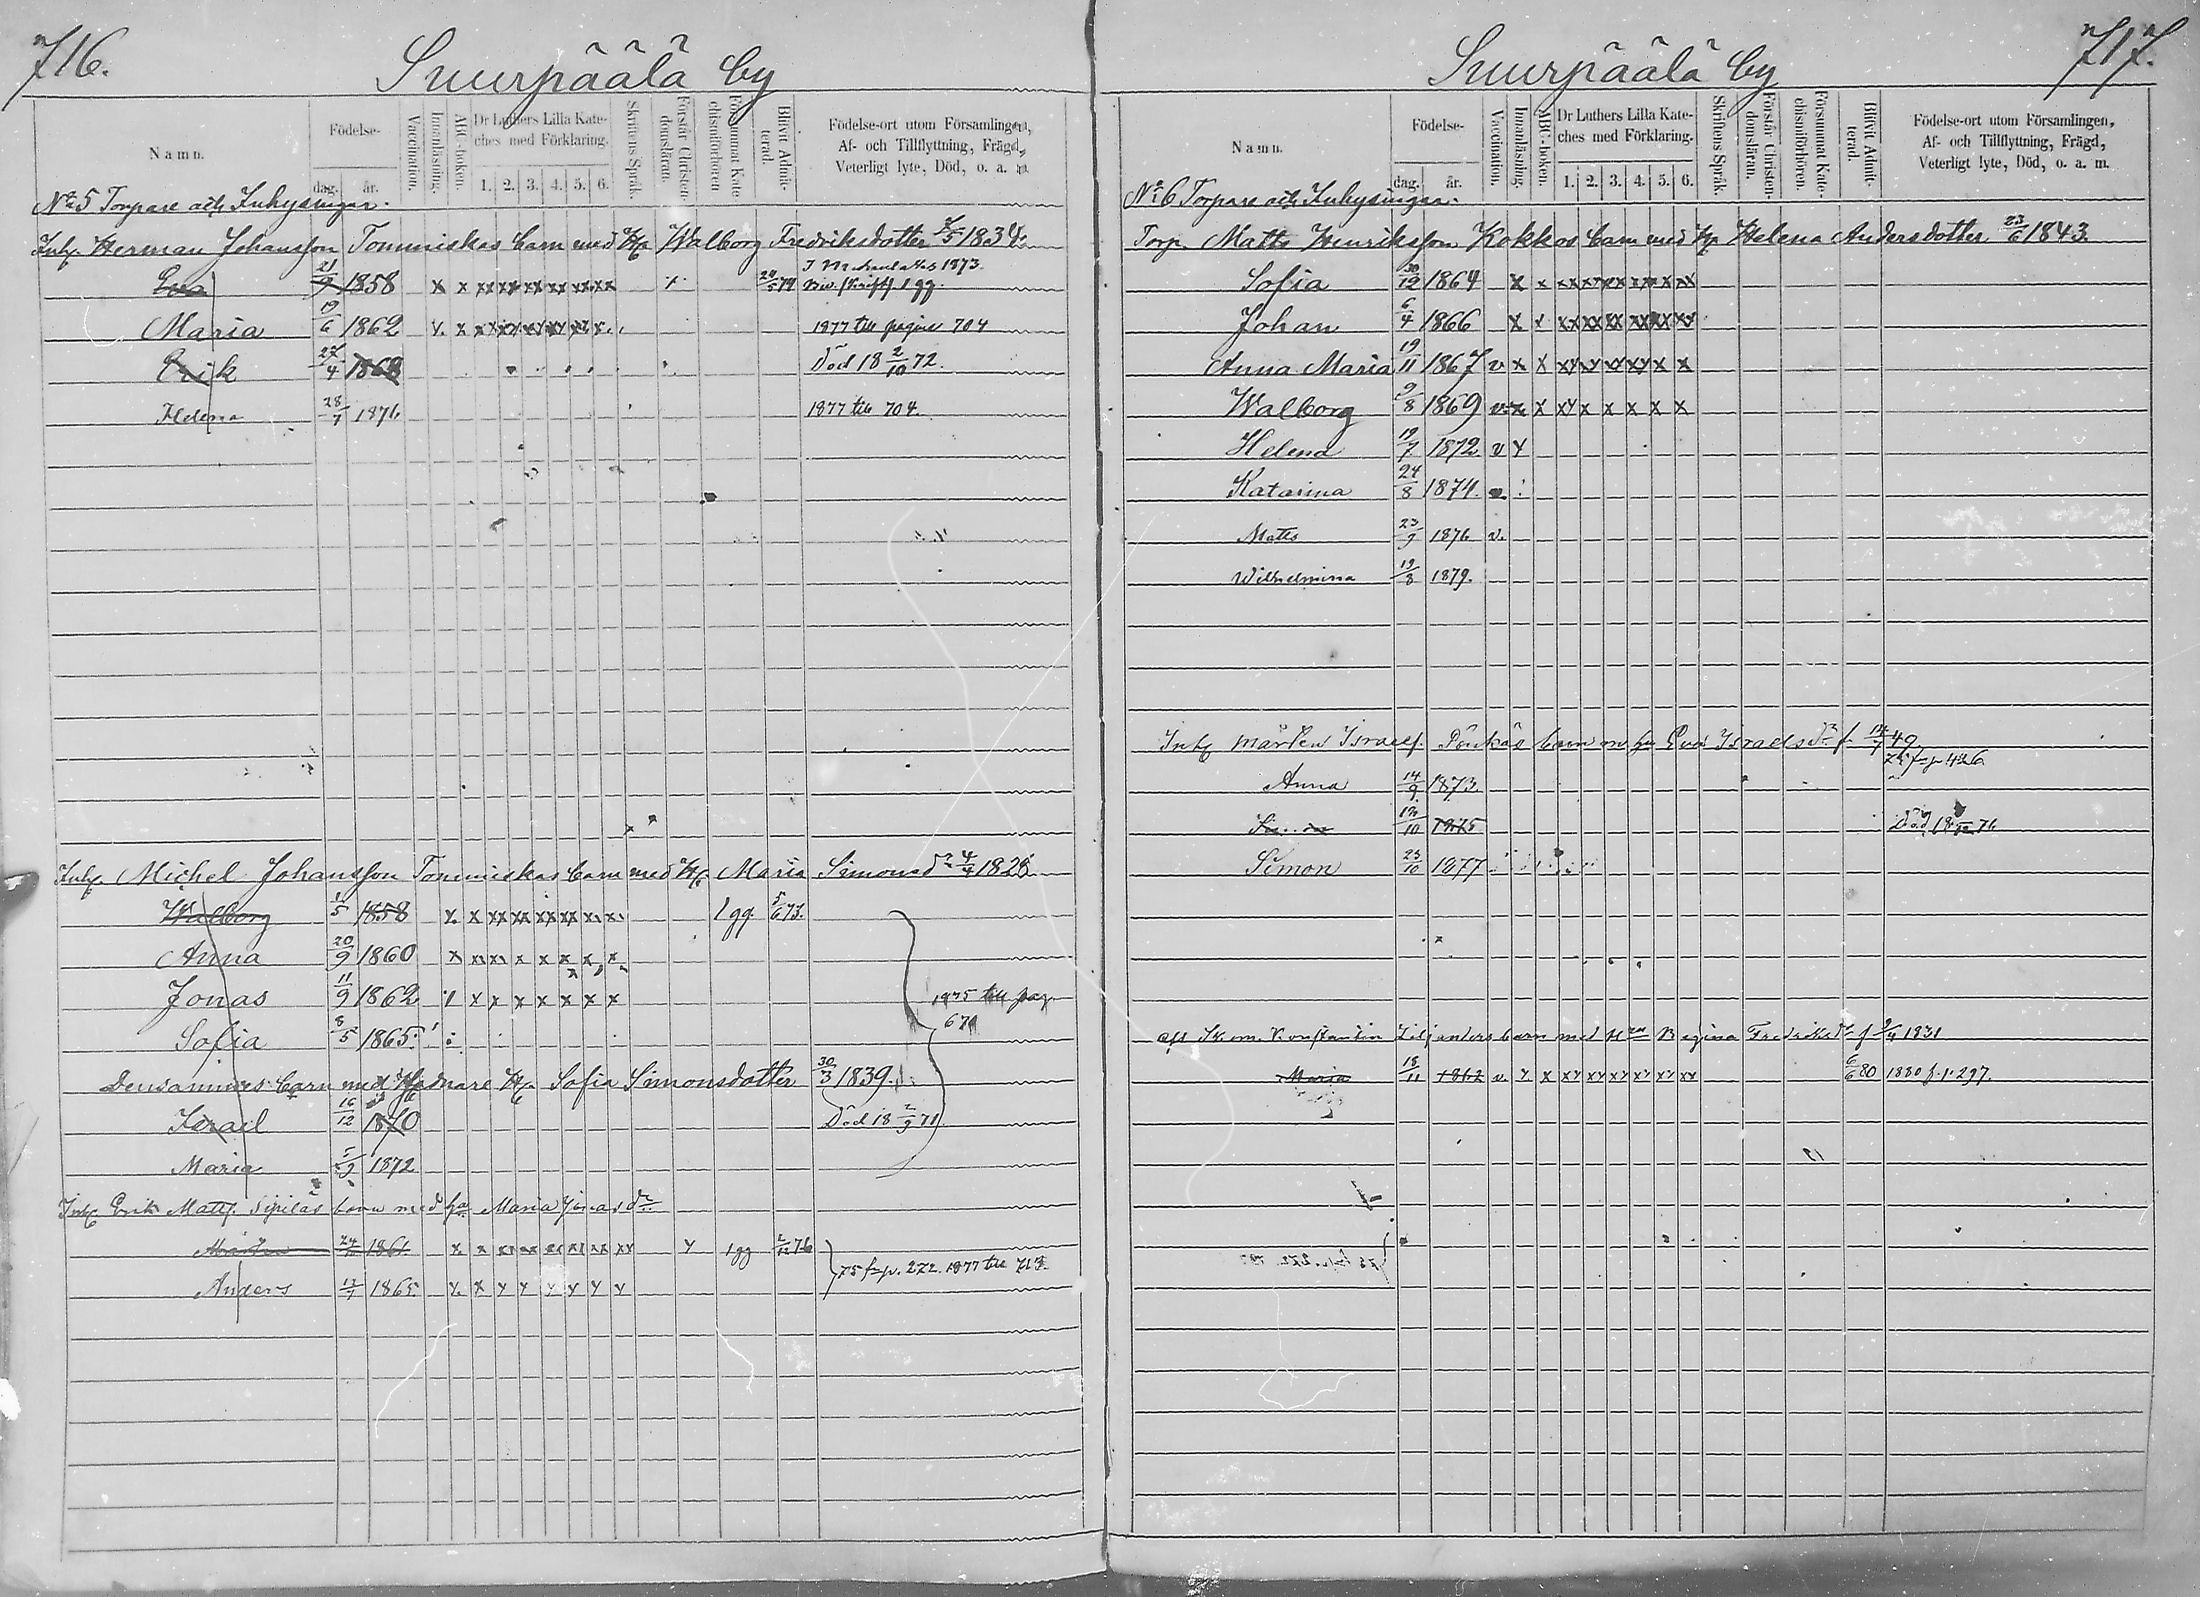 716.
Suurpäälä by
Namn.
Födelse-
dag.
år.
Vaccination.
Innanläsning.
ABC-boken.
Dr Luthers Lilla Kate-
ches med Förklaring.
1. 2. 3. 4. 5. 6.
Skriftens Språk.
Förstår Christen-
domsläran.
Försummat Kate-
chismiförhören
Blivit Admit-
terad.
Födelse-ort utom Församlingen,
Af- och Tillflyttning, Frägd,
Veterligt lyte, Död, o. a. m.
No 5 Torpare och Inhysingar.
Inh. Herman Johansson Tommiskas barn med H. Walborg Fredriksdotter 1834.
Eva 21/9 1858 x x xx xx xx xx xx xx 1873. 1 gg.
Maria 19/6 1862 1877 till pagina 704
Erik 27/4 1868 Död 18 2/10 72.
Helena 28/7 1876 1877 till 704
Inh. Michel Johansson Tommiskas barn med H. Maria Simonsdr 4/4
Walborg 1/5 1858 x x xx xx xx xx x x 1 gg. 5/6 73.
Anna 20/9 1860
Jonas 11/9 1862 x x x x x x x
1875 till pag.
Sofia 8/5 1865
Densammes barn med H. Sofia Simonsdotter 30/3 1839.
Israel 16/12 1870 Död 18 2/9 71
Maria 1872
Inh. Erik Matts. Sipiläs barn med Maria Jonasdr
1861 x x x x 1 gg 76
75 fr p. 272. 1877 till 713.
Anders 1865
717.
Suurpäälä by
Namn.
Födelse-
dag.
år.
Vaccination.
Innanläsning.
ABC-boken.
Dr Luthers Lilla Kate-
ches med Förklaring.
1. 2. 3. 4. 5. 6.
Skriftens Språk.
Förstår Christen-
domsläran.
Försummat Kate-
chismiförhören.
Blivit Admit-
terad.
Födelse-ort utom Församlingen,
Af- och Tillflyttning, Frägd,
Veterligt lyte, Död, o. a. m.
No 6 Torpare och Inhysingar.
Torp. Matts Henriksson Kokkos barn med H. Helena Andersdotter 23/6 1843.
Sofia 30/12 1864 x x xx xx xx xx x xx
Johan 6/4 1866 x x xx xx xx xx xx xx
Anna Maria 19/11 1867 v x x xx xx xx xx x x
Walborg 9/8 1869 v. x x xx x x x x x
Helena 19/7 1872 v x
Katarina 24/8 1874.
Matts 23/9 1876 v.
Wilhelmina 19/8 1879.
Inh. Mårten Israels. barn m. Eva Israelsdr f. 49
Anna 14/9 1873.
12/10 1875 Död 76
Simon 25/10 1877
afs. Konstantin Liljanders barn med Regina Fredriksdr f. 1831
Maria 18/11 1862 v. x x xx xx xx xx xx xx 6/6 80 1880 f. p. 297.